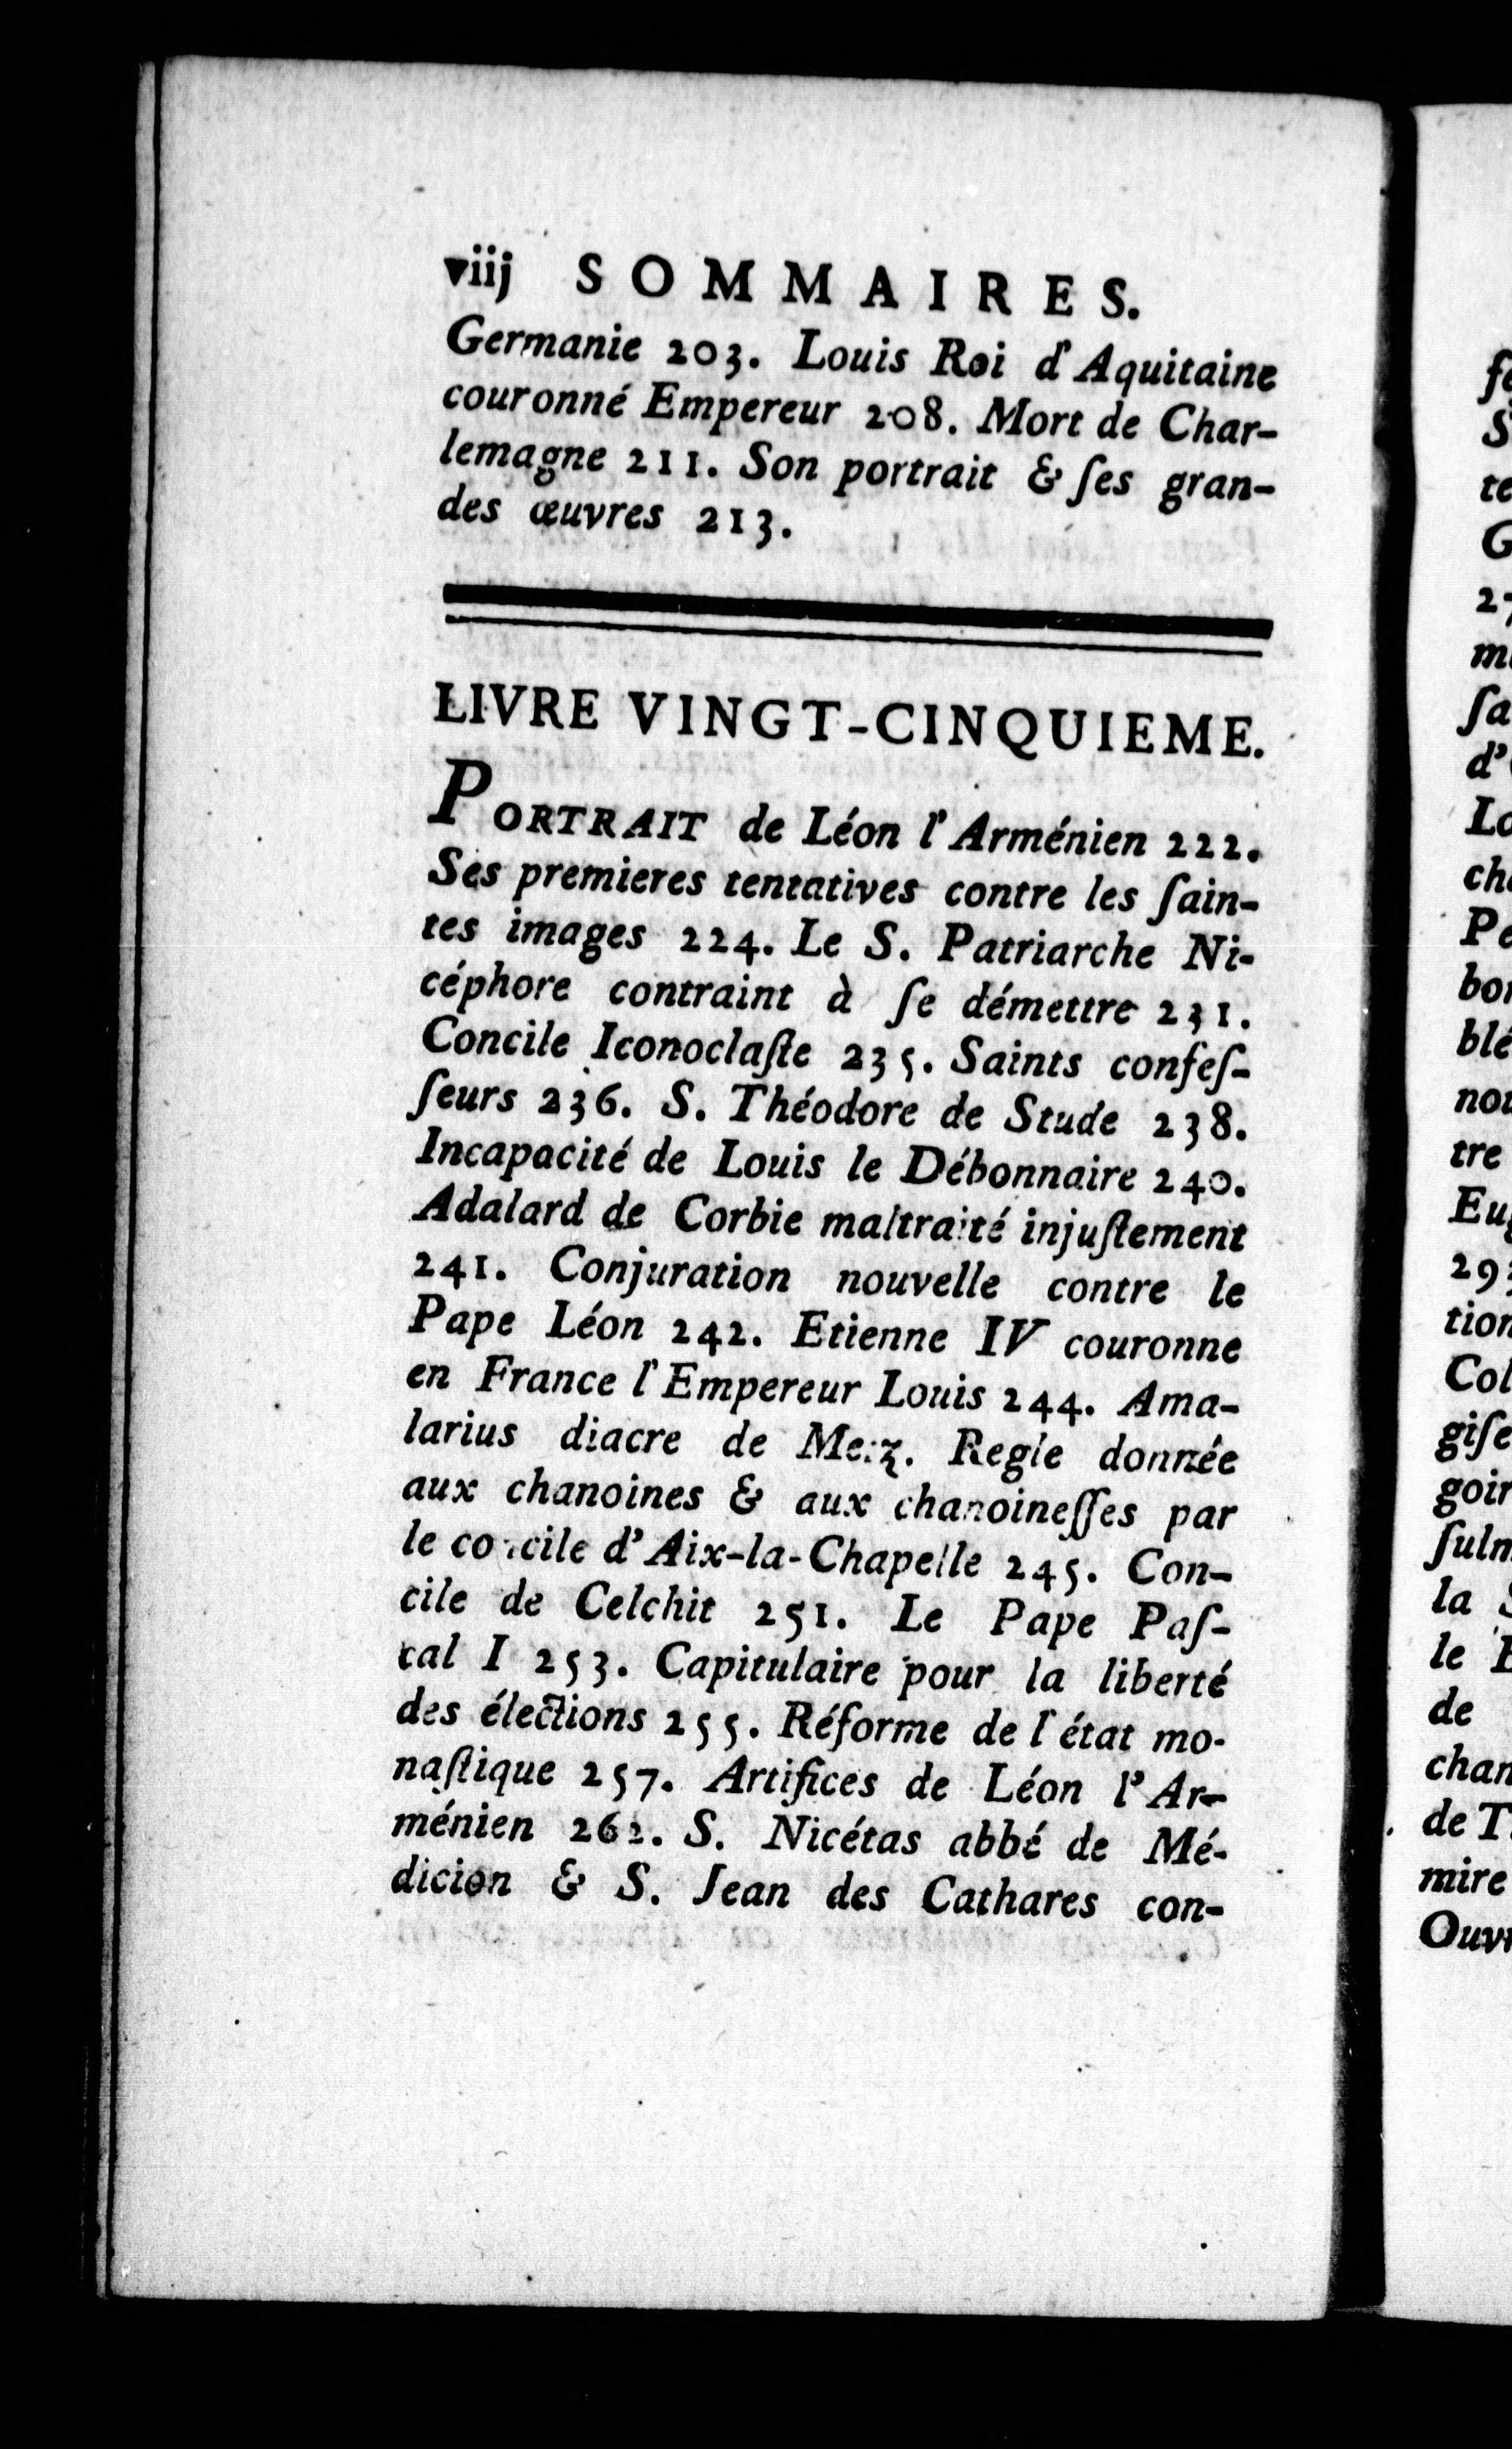 viij SOMMAIRES.
Germanie 203. Louis Roi d'Aquitaine
couronné Empereur 208. Mort de Char-
lemagne 211. Son portrait & ſes gran-
des œuvres 213.
LIVRE VINGT-CINQUIEME.
PORTRAIT de Léon l'Arménien 222.
Ses premieres tentatives contre les ſain-
tes images 224. Le S. Patriarche Ni-
céphore contraint à ſe démettre 231.
Concile Iconoclaſte 235. Saints confeſ-
ſeurs 236. S. Théodore de Stude 238.
Incapacité de Louis le Débonnaire 240.
Adalard de Corbie maltraité injuſtement
241. Conjuration nouvelle contre le
Pape Léon 242. Etienne IV couronne
en France l'Empereur Louis 244. Ama-
larius diacre de Metz. Regle donnée
aux chanoines & aux chanoineſſes par
le concile d'Aix-la-Chapelle 245. Con-
cile de Celchit 251. Le Pape Paſ-
cal I 253. Capitulaire pour la liberté
des élections 255. Réforme de l'état mo-
naſtique 257. Artifices de Léon l'Ar-
ménien 262. S. Nicétas abbé de Mé-
dicion & S. Jean des Cathares con-